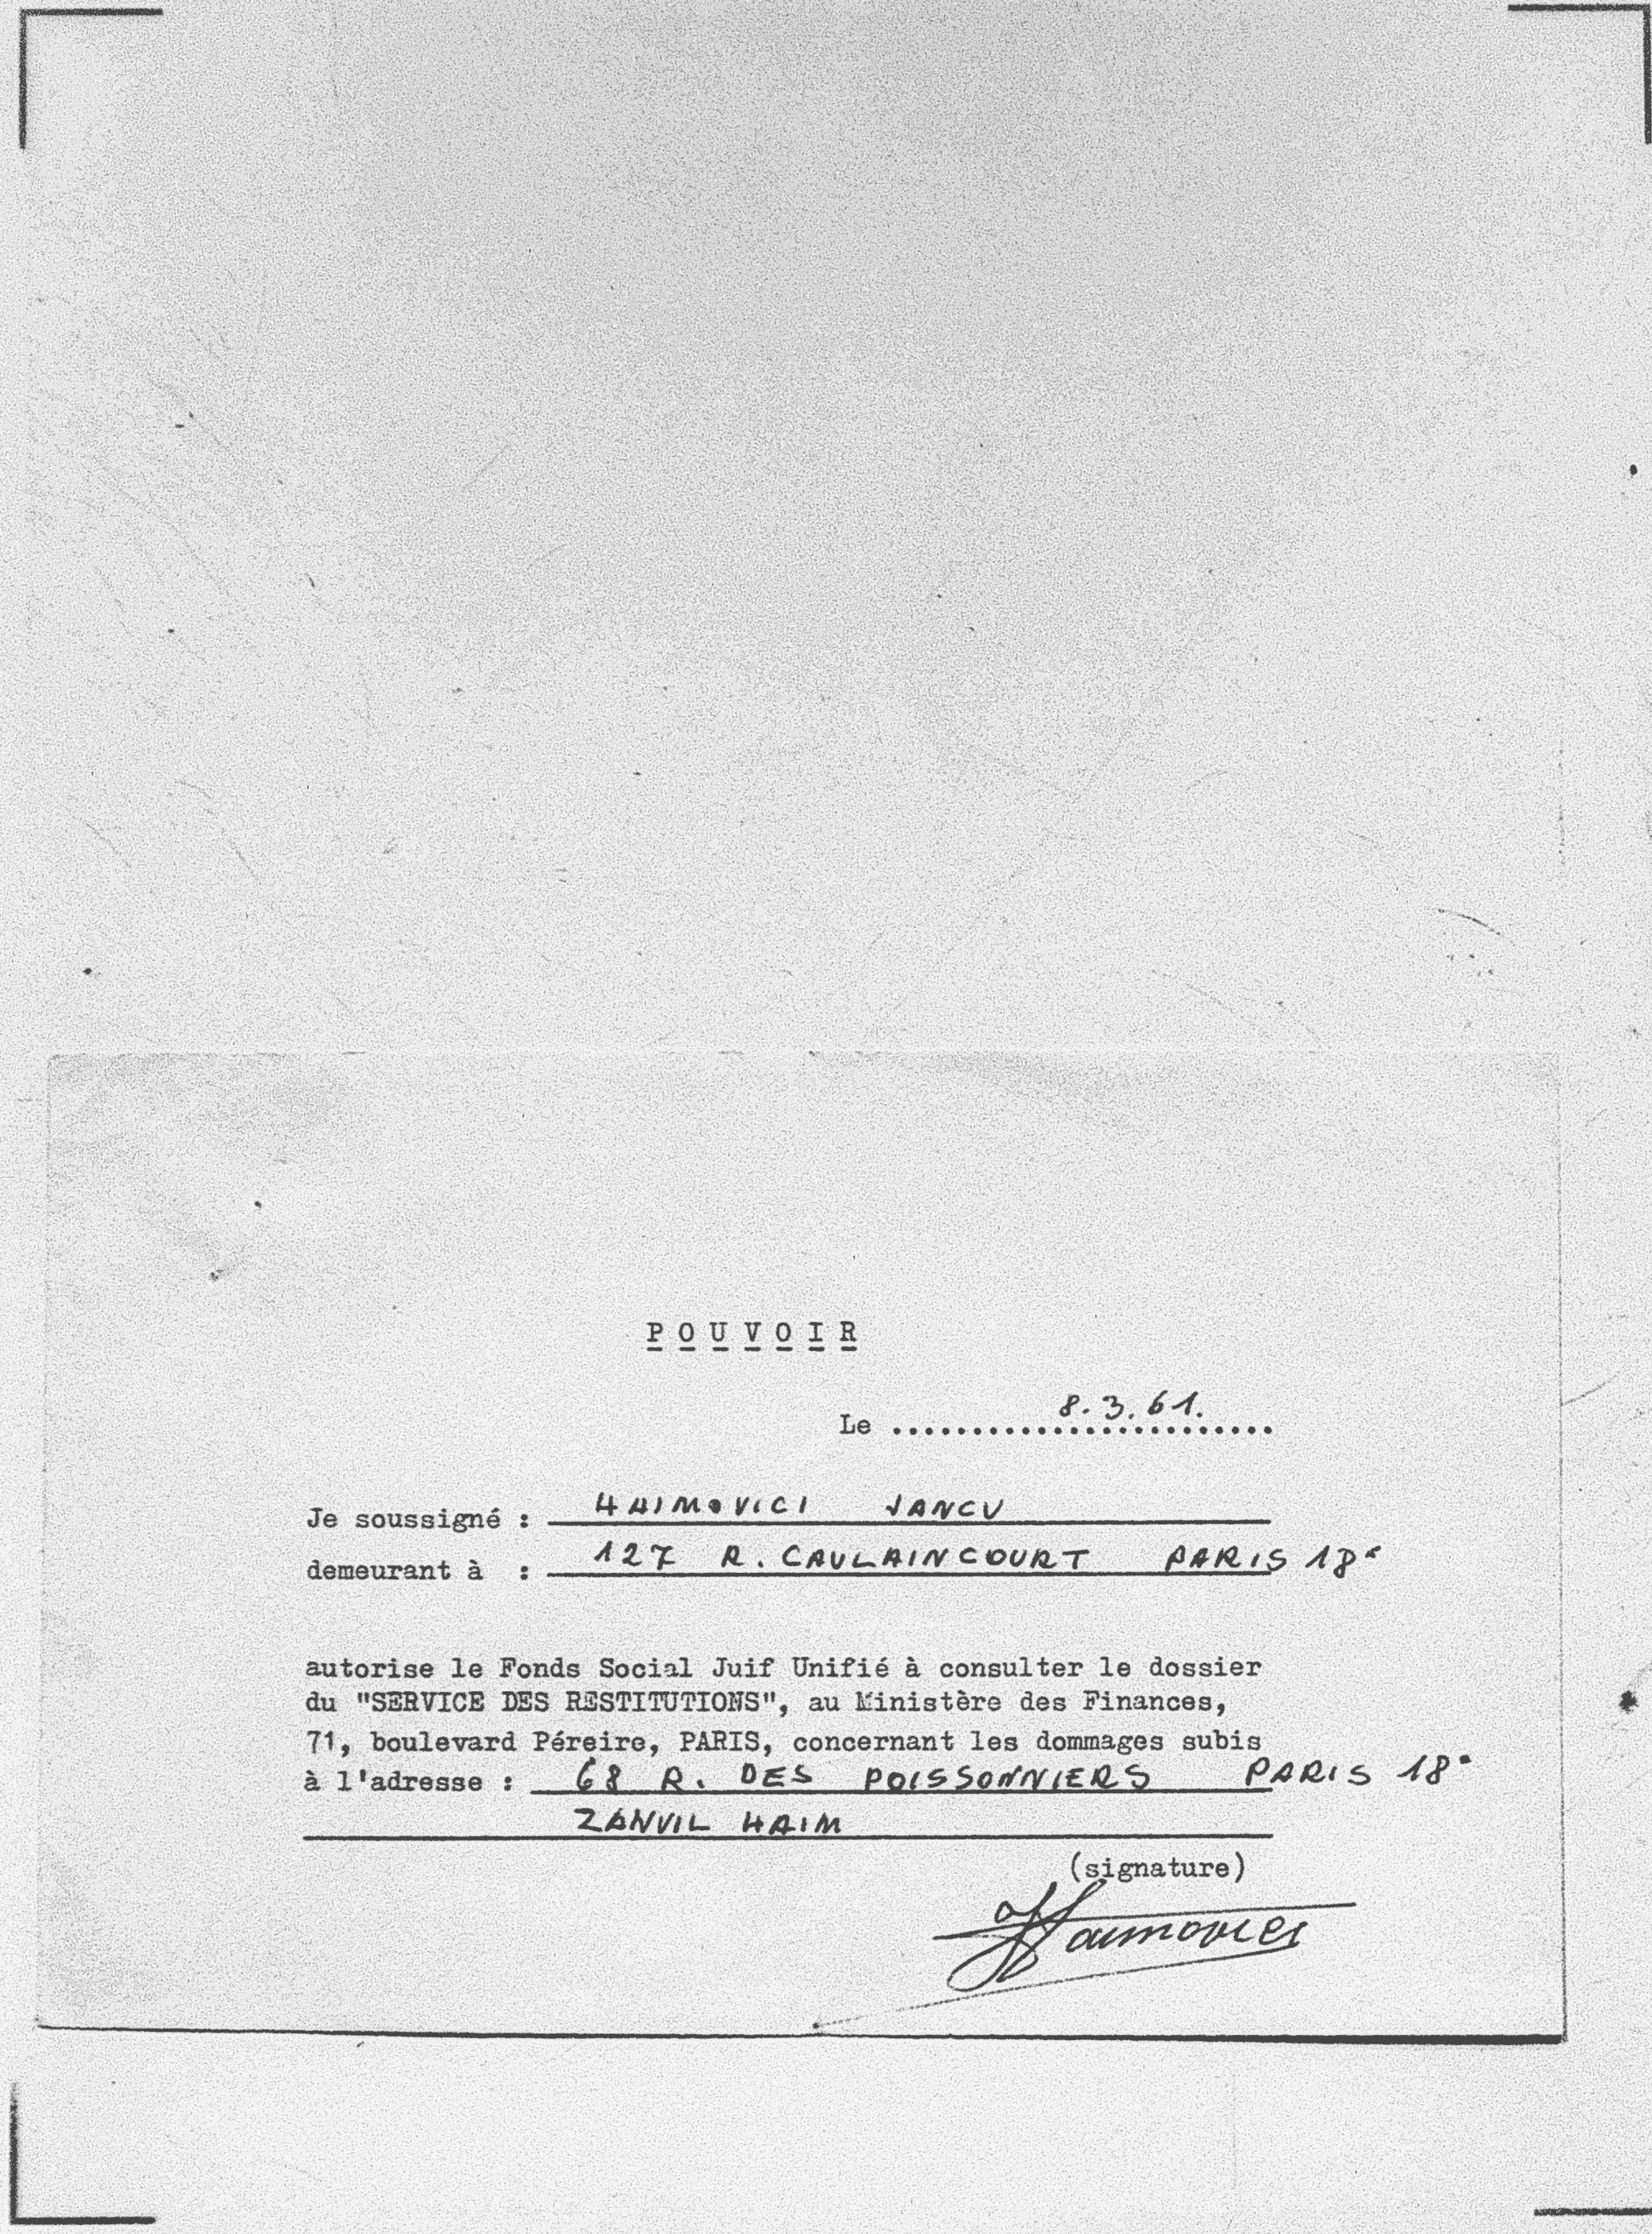 P O U V O I R
Le ........................ 8.3.61.
Je soussigné : HAIMOVICI JANCU
demeurant à : 127 R. CAULAINCOURT PARIS 18e
autorise le Fonds Social Juif Unifié à consulter le dossier
du "SERVICE DES RESTITUTIONS", au Ministère des Finances,
71, boulevard Péreire, PARIS, concernant les dommages subis
à l'adresse : 68 R. DES POISSONNIERS PARIS 18°
ZANVIL HAIM
(signature)
Haimovici